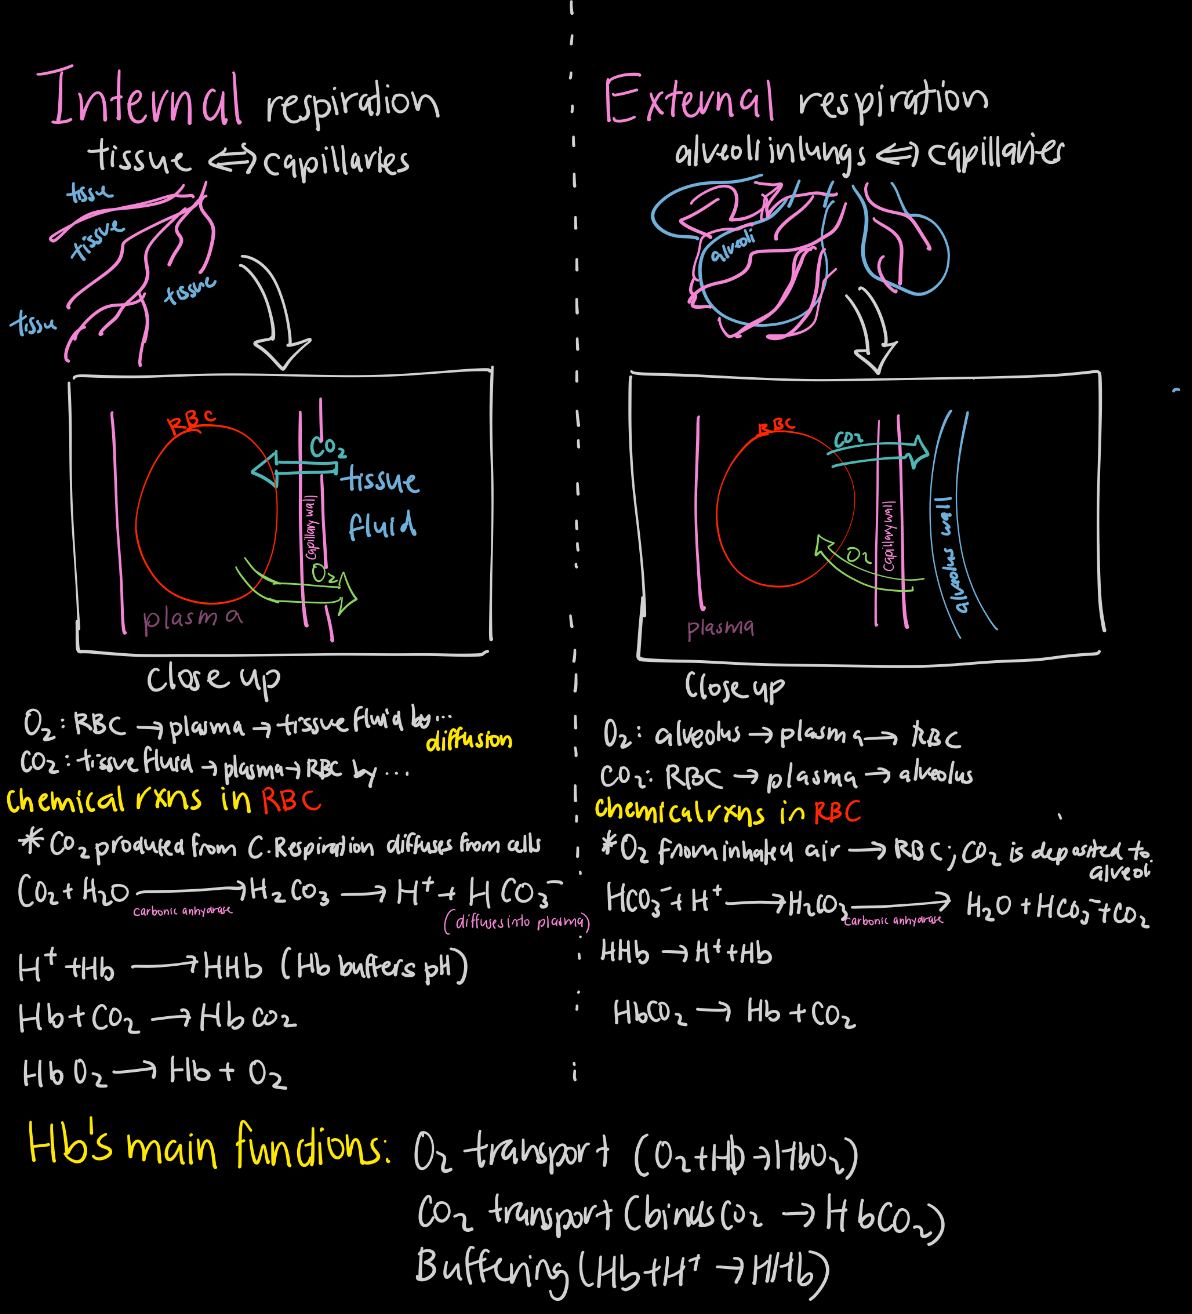 Internal respiration
tissue ⇔ capillaries
tissue
tissue
tissue
tissue
RBC
CO₂
tissue
fluid
capillary wall
O₂
plasma
close up
O₂: RBC → plasma → tissue fluid by...
diffusion
CO₂: tissue fluid → plasma → RBC by ...
chemical rxns in RBC
* CO₂ produced from C. Respiration diffuses from cells
CO₂ + H₂O → H₂CO₃ → H⁺ + HCO₃⁻
carbonic anhydrase
(diffuses into plasma)
H⁺ + Hb → HHb (Hb buffers pH)
Hb + CO₂ → HbCO₂
HbO₂ → Hb + O₂
External respiration
alveoli in lungs ⇔ capillaries
alveoli
RBC
CO₂
capillary wall
alveolus wall
O₂
plasma
Close up
O₂: alveolus → plasma → RBC
CO₂: RBC → plasma → alveolus
chemical rxns in RBC
* O₂ from inhaled air → RBC; CO₂ is deposited to
alveoli
HCO₃⁻ + H⁺ → H₂CO₃ → H₂O + HCO₃⁻ + CO₂
carbonic anhydrase
HHb → H⁺ + Hb
HbCO₂ → Hb + CO₂
Hb's main functions: O₂ transport (O₂ + Hb → HbO₂)
CO₂ transport (binds CO₂ → HbCO₂)
Buffering (Hb + H⁺ → HHb)